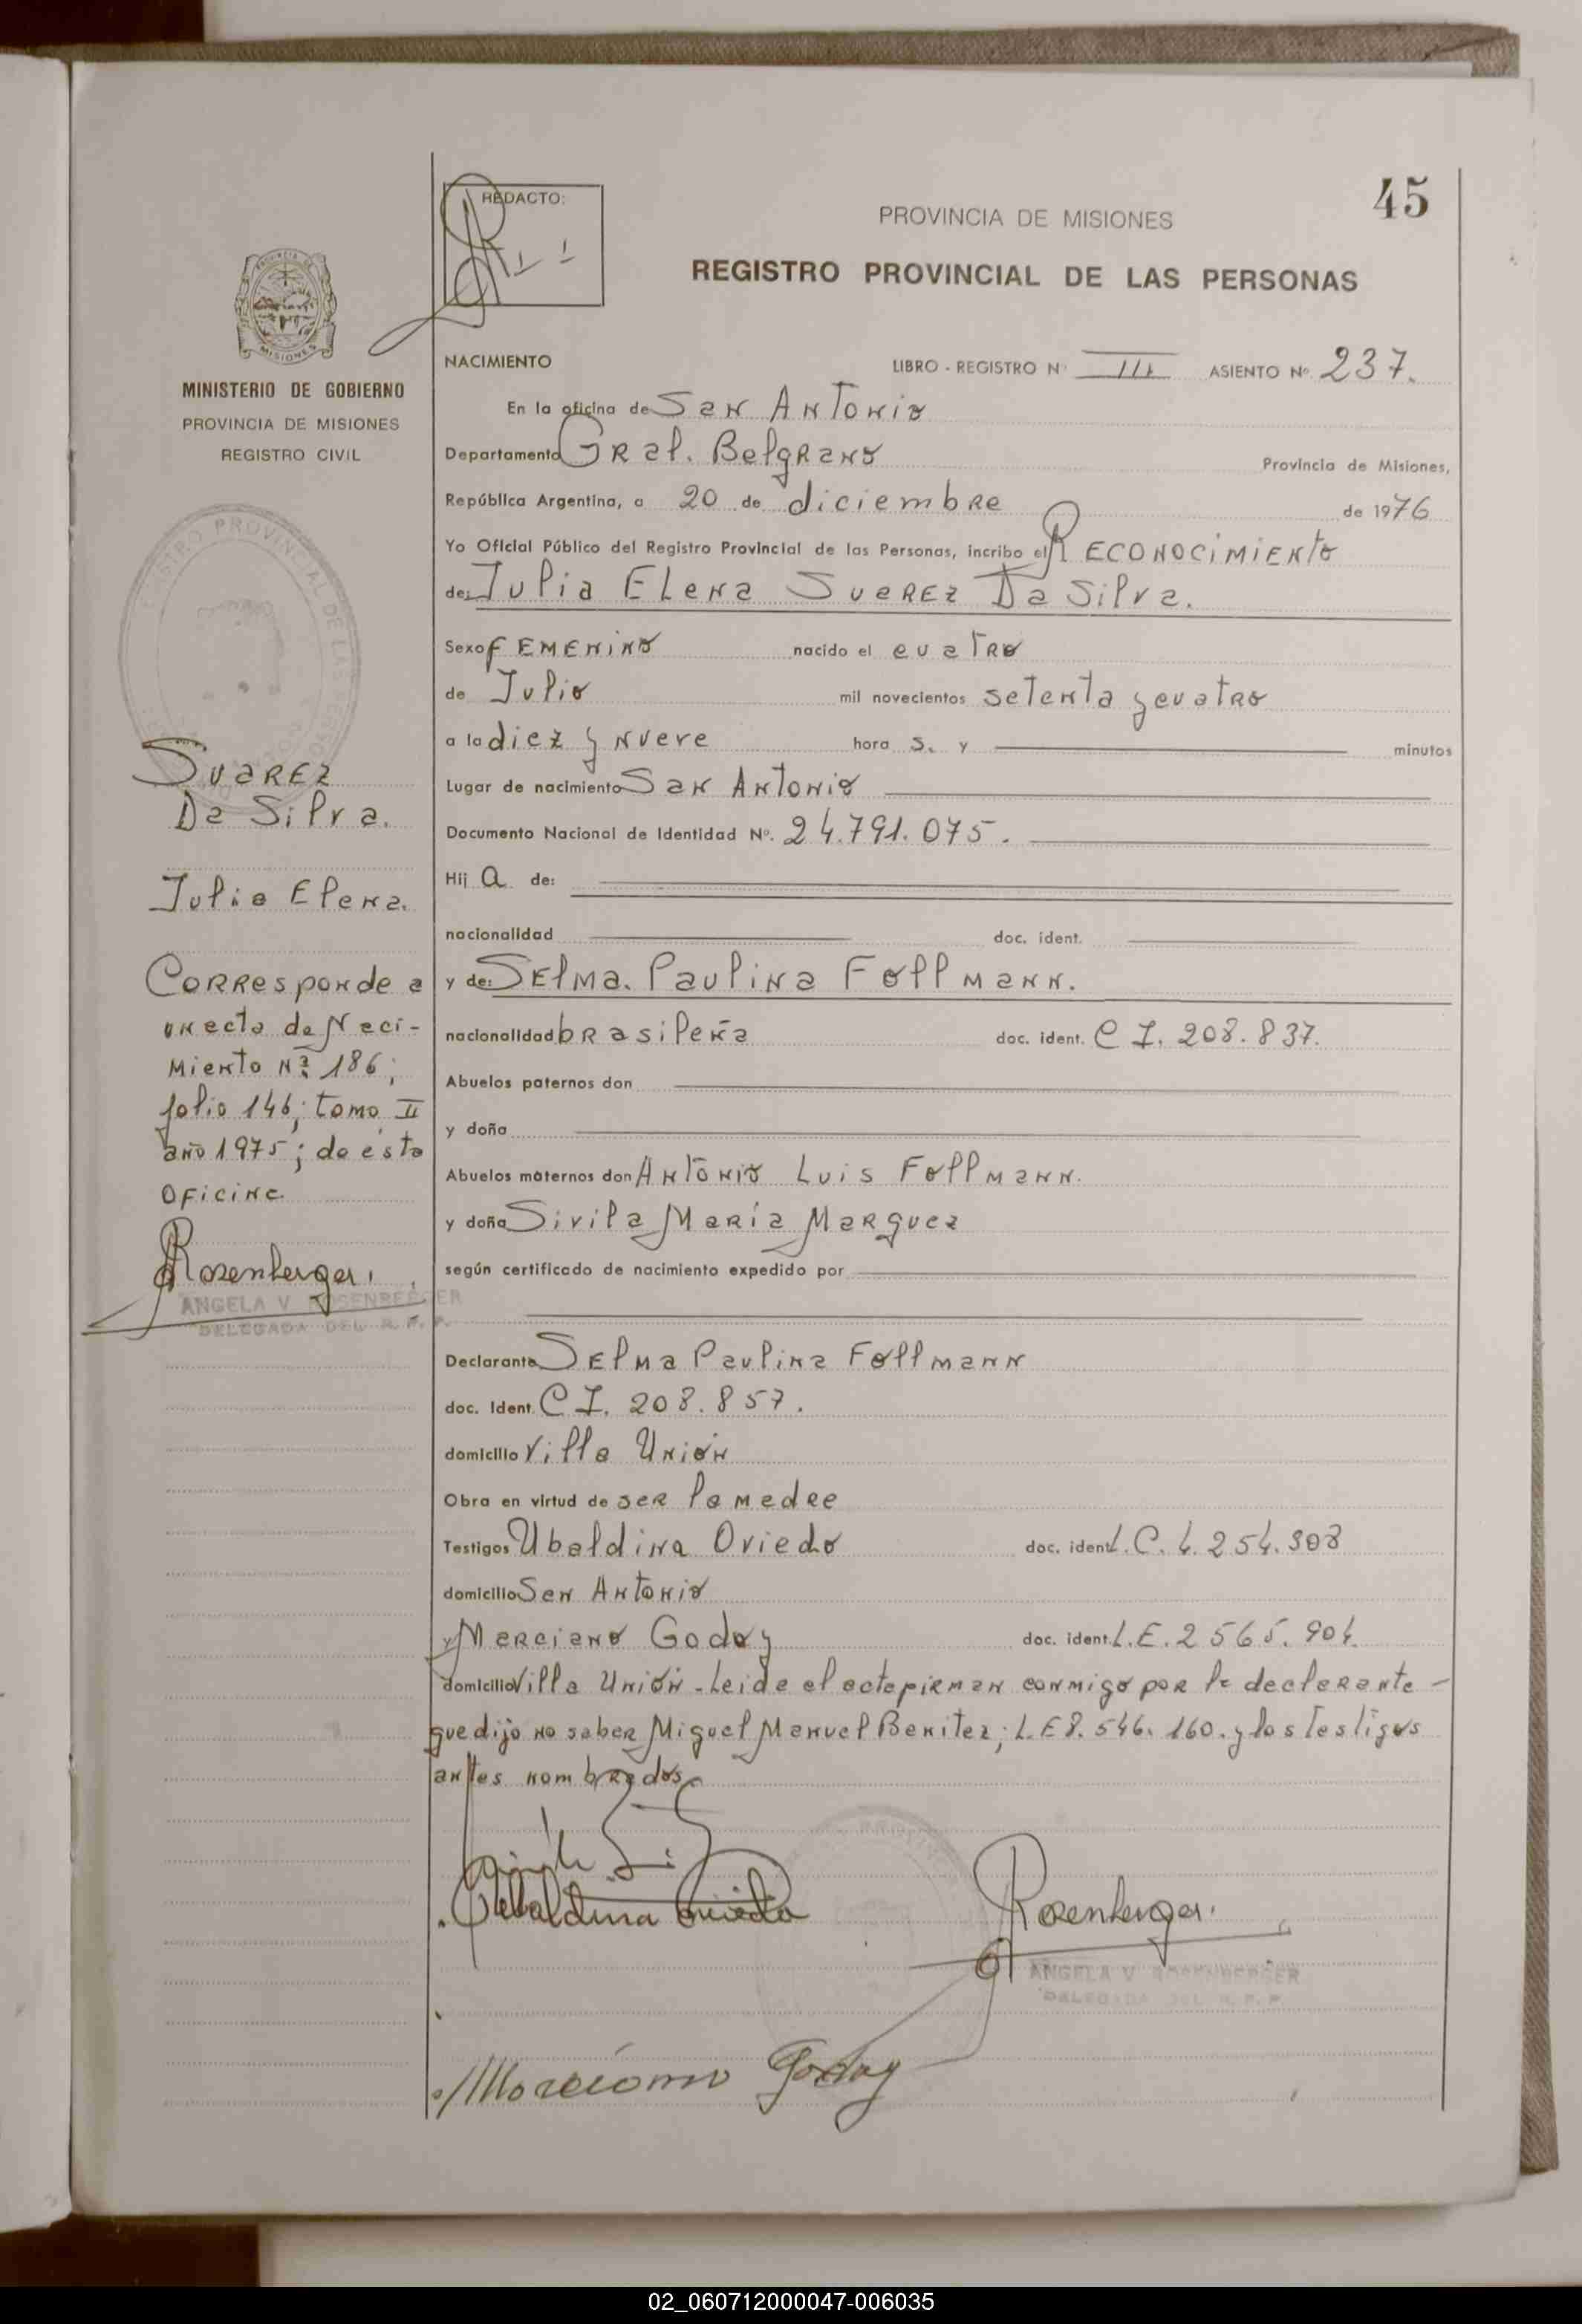 45
REDACTO:
PROVINCIA DE MISIONES
REGISTRO PROVINCIAL DE LAS PERSONAS
MISIONES
MINISTERIO DE GOBIERNO
PROVINCIA DE MISIONES
REGISTRO CIVIL
NACIMIENTO LIBRO - REGISTRO Nº III ASIENTO Nº 237.
En la oficina de San Antonio
Departamento Gral. Belgrano Provincia de Misiones,
República Argentina, a 20 de diciembre de 1976
Yo Oficial Público del Registro Provincial de las Personas, incribo el Reconocimiento
de: Julia Elena Suarez Da Silva.
Sexo Femenino nacido el cuatro
de Julio mil novecientos setenta y cuatro
a la diez y nueve hora s. y minutos
Lugar de nacimiento San Antonio
Documento Nacional de Identidad Nº. 24.791.075.
Hij a de:
nacionalidad doc. ident.
y de: Selma. Paulina Follmann.
nacionalidad brasileña doc. ident. C I. 208.837.
Abuelos paternos don
y doña
Abuelos maternos don Antonio Luis Follmann.
y doña Sivila María Marquez
según certificado de nacimiento expedido por
Declarante Selma Paulina Follmann
doc. Ident. C I. 208.857.
domicilio Villa Unión
Obra en virtud de ser la madre
Testigos Ubaldina Oviedo doc. ident. L.C. 4.254.308
domicilio San Antonio
y Marciano Godoy doc. ident. L.E. 2565.904.
domicilio Villa Unión - Leida el acta firman conmigo por la declarante -
que dijo no saber Miguel Manuel Benitez; L.E 8.546.160. y los testigos
antes nombrados
Suarez
Da Silva.
Julia Elena.
Corresponde a
un acta de Naci-
miento Nº 186;
folio 146; tomo II
año 1975; de esta
oficina
Rosenberger.
ANGELA V. ROSENBERGER
DELEGADA DEL R. P. P.
Ubaldina Oviedo
Rosenberger.
ANGELA V. ROSENBERGER
DELEGADA DEL R. P. P.
Marciano Godoy
02_060712000047-006035